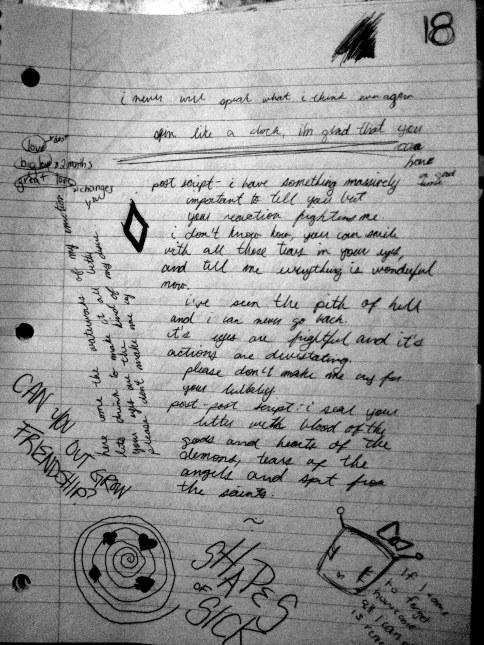 18
i never will speak what i think ever again
spin like a clock, i'm glad that you
are
here
a good
time
love
big love = 2 months
great love
changes
you
post script - i have something massively
important to tell you but
your reaction frightens me.
i don't know how, you can smile
with all those tears in your eyes,
and tell me everything is wonderful
now.
i've seen the pith of hell
and i can never go back.
it's eyes are frightful and it's
actions are devistating.
please don't make me cry for
your lullabey.
post-post script: i seal your
letter with blood of the
gods and hearts of the
demons, tears of the
angels and spit from
the saints.
~
here come the waterworks of my emotion
lets drink to make it all
your eyes are the
please don't make me cry
CAN YOU OUT GROW
FRIENDSHIP?
SHAPES
OF
SICK
If I come
to forget